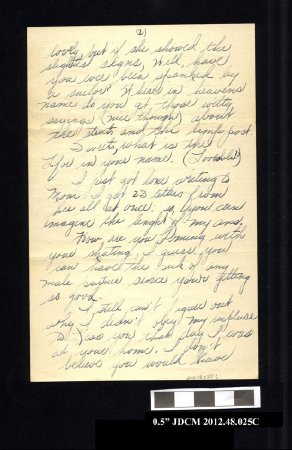 (2)
lovely but if she should the
slightest signs, Well, have
you ever been spanked by
a sailor? Where in heavens
name do you get those witty
sayings (nice though) about
the truth and the lamp post.
Sweets, what is the
for in your name. (Loveable?)
I just got done writing to
Mom. I got 23 letters from
her all at once so, you can
imagine the length of my ans.
How are you coming with
your skating. I guess you
can have the pick of any
male since your getting
so good.
I still can't figure out
why I didn't obey my impulse
to kiss you that day I was
at your home. I don't
believe you would have
0.5" JDCM 2012.48.025C